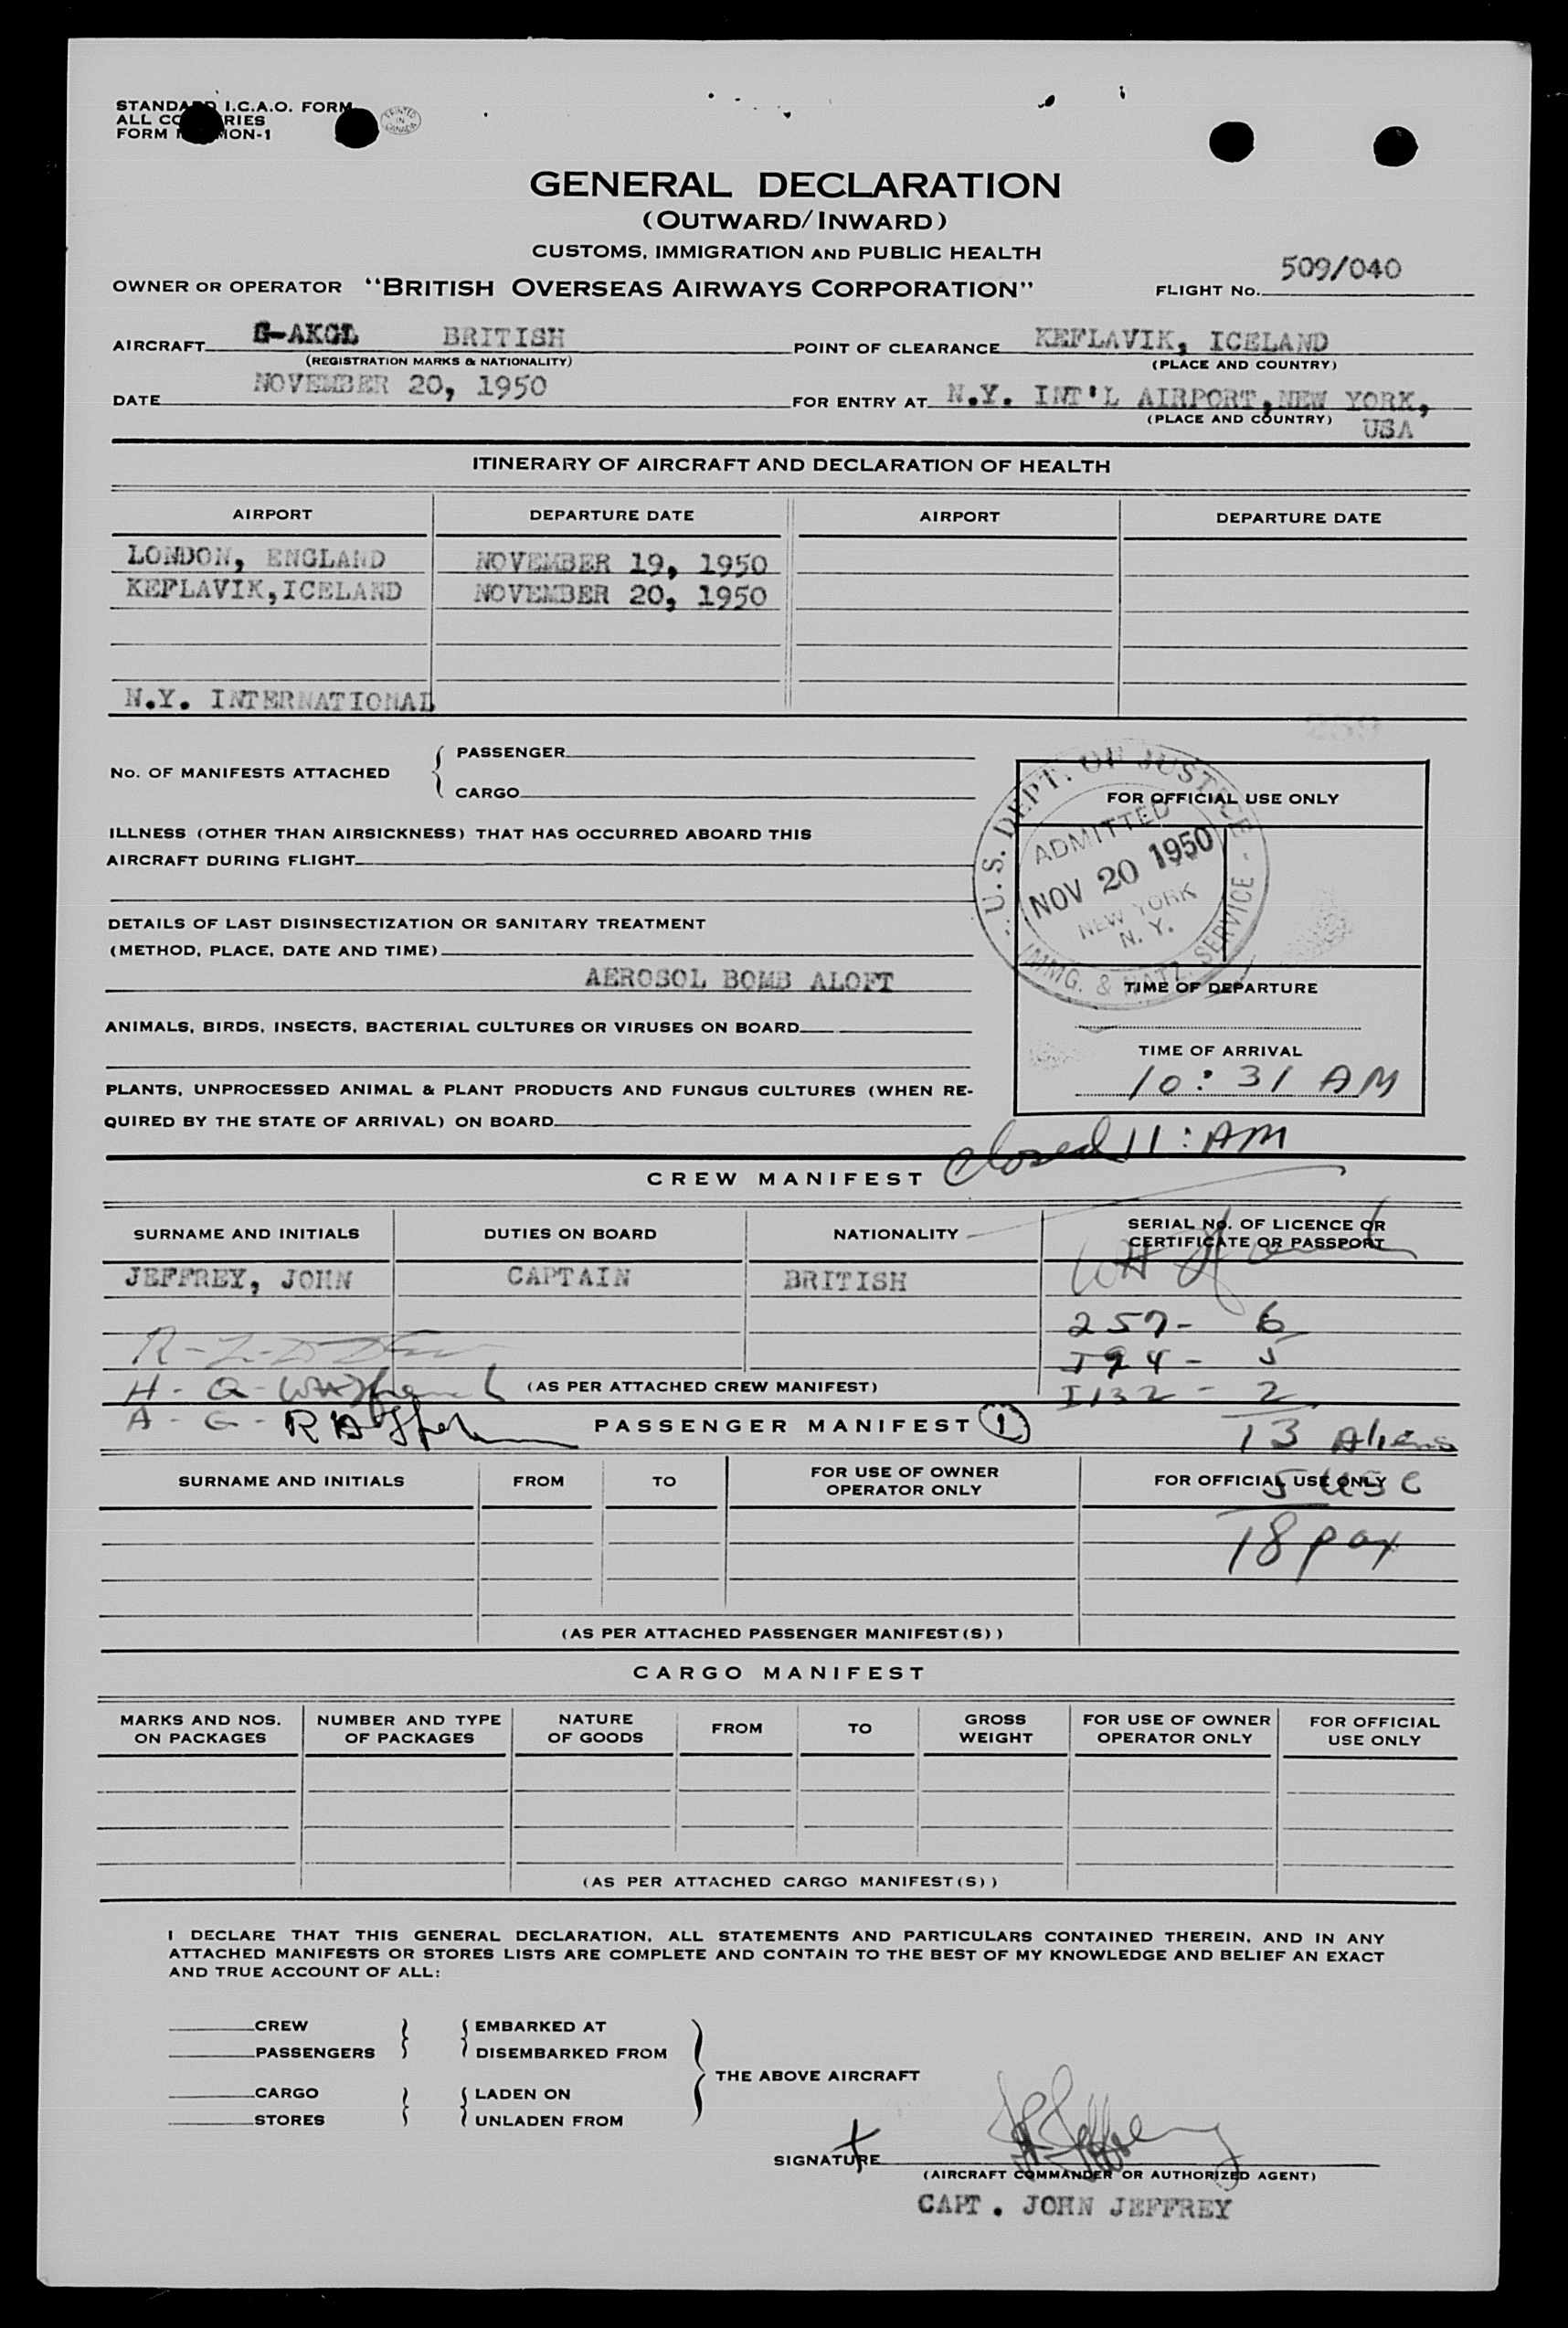 STANDARD I.C.A.O. FORM
ALL COUNTRIES
FORM MON-1
PRINTED IN CANADA
GENERAL DECLARATION
(OUTWARD/INWARD)
CUSTOMS, IMMIGRATION AND PUBLIC HEALTH
OWNER OR OPERATOR "BRITISH OVERSEAS AIRWAYS CORPORATION" FLIGHT No. 509/040
AIRCRAFT G-AKGL BRITISH POINT OF CLEARANCE KEFLAVIK, ICELAND
(REGISTRATION MARKS & NATIONALITY) (PLACE AND COUNTRY)
DATE NOVEMBER 20, 1950 FOR ENTRY AT N.Y. INT'L AIRPORT, NEW YORK,
(PLACE AND COUNTRY) USA
ITINERARY OF AIRCRAFT AND DECLARATION OF HEALTH
AIRPORT DEPARTURE DATE AIRPORT DEPARTURE DATE
LONDON, ENGLAND NOVEMBER 19, 1950
KEFLAVIK, ICELAND NOVEMBER 20, 1950
N.Y. INTERNATIONAL
No. OF MANIFESTS ATTACHED
PASSENGER
CARGO
ILLNESS (OTHER THAN AIRSICKNESS) THAT HAS OCCURRED ABOARD THIS
AIRCRAFT DURING FLIGHT
DETAILS OF LAST DISINSECTIZATION OR SANITARY TREATMENT
(METHOD, PLACE, DATE AND TIME)
AEROSOL BOMB ALOFT
ANIMALS, BIRDS, INSECTS, BACTERIAL CULTURES OR VIRUSES ON BOARD
PLANTS, UNPROCESSED ANIMAL & PLANT PRODUCTS AND FUNGUS CULTURES (WHEN RE-
QUIRED BY THE STATE OF ARRIVAL) ON BOARD
FOR OFFICIAL USE ONLY
U.S. DEPT. OF JUSTICE
ADMITTED
NOV 20 1950
NEW YORK
N.Y.
IMMG. & NATZ. SERVICE
TIME OF DEPARTURE
TIME OF ARRIVAL
10:31 AM
closed 11:AM
CREW MANIFEST
SURNAME AND INITIALS DUTIES ON BOARD NATIONALITY SERIAL No. OF LICENCE OR
CERTIFICATE OR PASSPORT
JEFFREY, JOHN CAPTAIN BRITISH
257- 6
I94- 5
I132- 2
(AS PER ATTACHED CREW MANIFEST)
PASSENGER MANIFEST 1
13 Aliens
SURNAME AND INITIALS FROM TO FOR USE OF OWNER
OPERATOR ONLY FOR OFFICIAL USE ONLY
5 USC
18 pax
(AS PER ATTACHED PASSENGER MANIFEST(S))
CARGO MANIFEST
MARKS AND NOS.
ON PACKAGES NUMBER AND TYPE
OF PACKAGES NATURE
OF GOODS FROM TO GROSS
WEIGHT FOR USE OF OWNER
OPERATOR ONLY FOR OFFICIAL
USE ONLY
(AS PER ATTACHED CARGO MANIFEST(S))
I DECLARE THAT THIS GENERAL DECLARATION, ALL STATEMENTS AND PARTICULARS CONTAINED THEREIN, AND IN ANY
ATTACHED MANIFESTS OR STORES LISTS ARE COMPLETE AND CONTAIN TO THE BEST OF MY KNOWLEDGE AND BELIEF AN EXACT
AND TRUE ACCOUNT OF ALL:
CREW EMBARKED AT
PASSENGERS DISEMBARKED FROM
THE ABOVE AIRCRAFT
CARGO LADEN ON
STORES UNLADEN FROM
SIGNATURE
(AIRCRAFT COMMANDER OR AUTHORIZED AGENT)
CAPT. JOHN JEFFREY